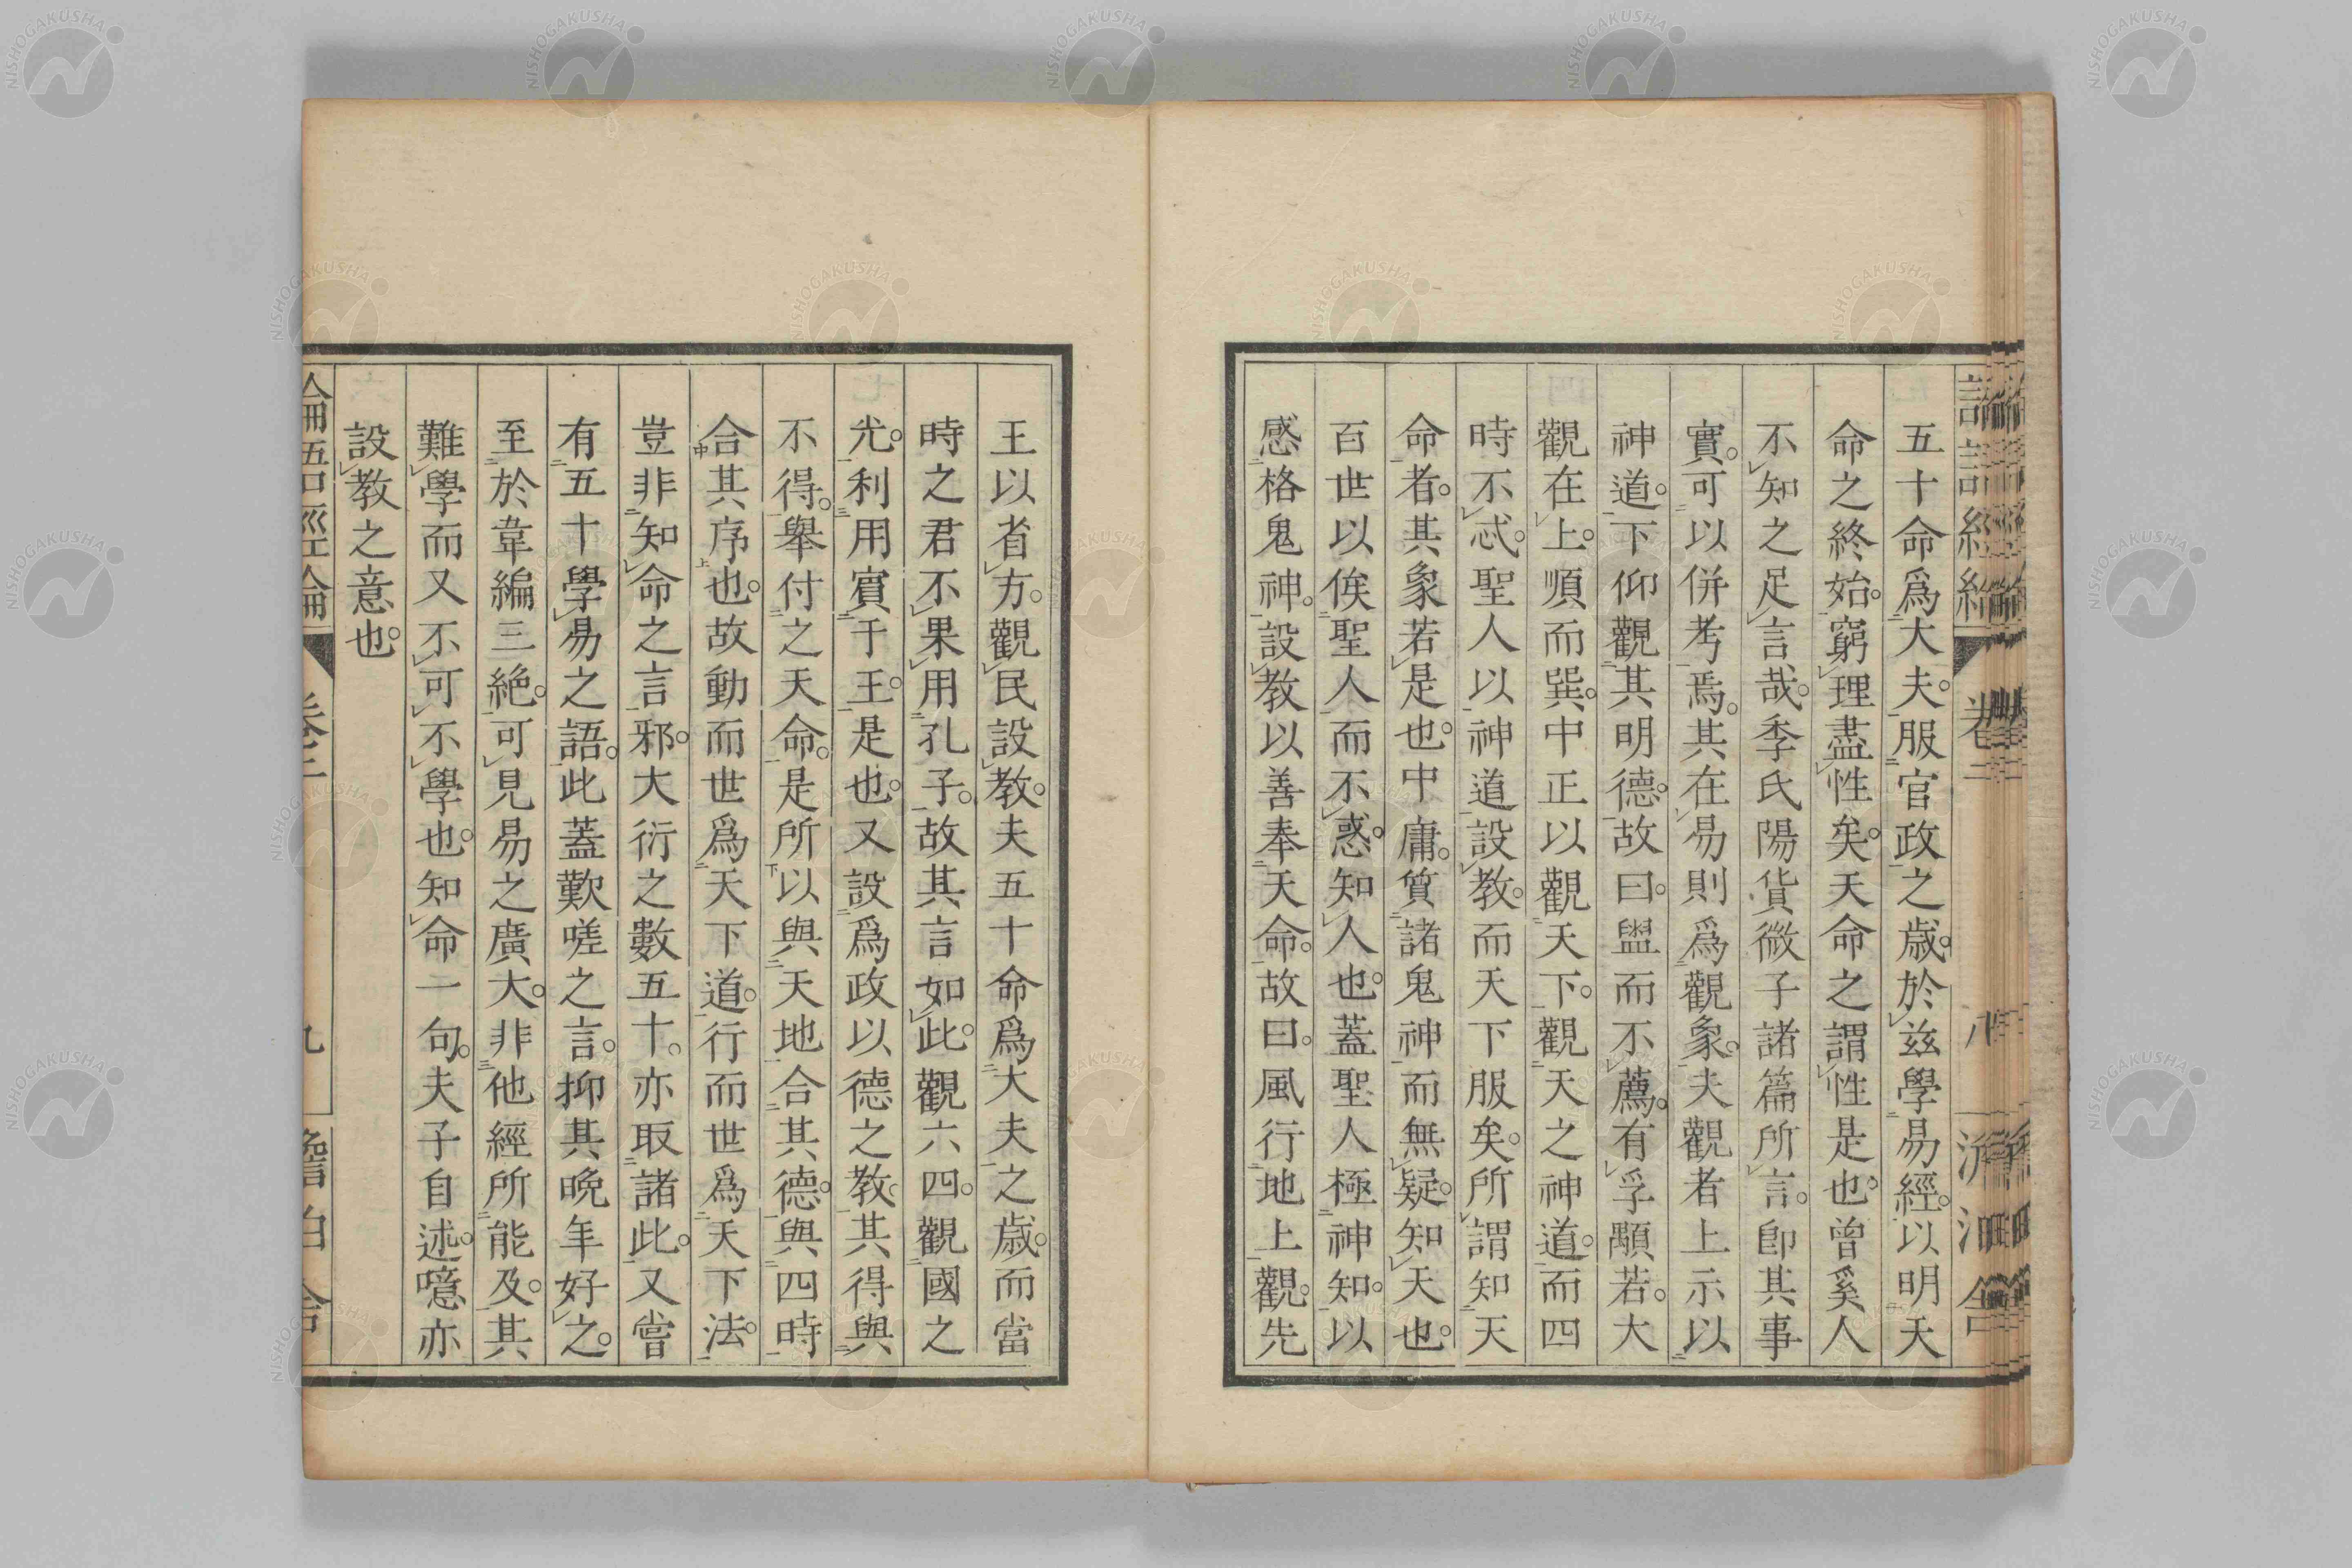 五十命爲大夫。服官政之歲。於兹學易經。以明天
命之終始。窮理盡性矣。天命之謂性是也。曾奚人
不知之足言哉。季氏陽貨微子諸篇所言。即其事
實。可以併考焉。其在易則爲觀象。夫觀者上示以
神道。下仰觀其明德。故曰。盥而不薦。有孚顒若。大
觀在上。順而巽。中正以觀天下。觀天之神道。而四
時不忒。聖人以神道設教。而天下服矣。所謂知天
命者。其象若是也。中庸。質諸鬼神而無疑。知天也。
百世以俟聖人而不惑。知人也。蓋聖人極神知。以
感格鬼神。設教以善奉天命。故曰。風行地上觀。先
王以省方。觀民設教。夫五十命爲大夫之歲。而當
時之君不果用孔子。故其言如此。觀六四。觀國之
光。利用賓于王。是也。又設爲政以德之教。其得與
不得。舉付之天命。是所以與天地合其德。與四時
合其序也。故動而世爲天下道。行而世爲天下法。
豈非知命之言邪。大衍之數五十。亦取諸此。又嘗
有五十學易之語。此蓋歎嗟之言。抑其晩年好之。
至於韋編三絶。可見易之廣大。非他經所能及。其
難學而又不可不學也。知命一句。夫子自述。噫亦
設教之意也。
論語經綸
卷二
九
NISHOGAKUSHA